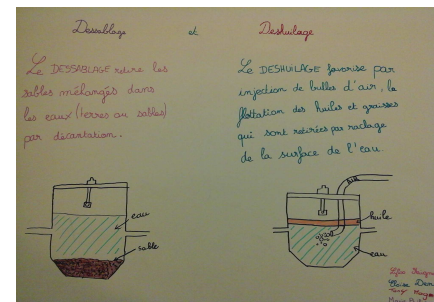 Dessablage et Deshuilage
Le DESSABLAGE retire les
sables mélangés dans
les eaux (terres ou sables)
par décantation.
Le DESHUILAGE favorise par
injection de bulles d'air, la
flottation des huiles et graisses
qui sont retirées par raclage
de la surface de l'eau
eau
sable
AIR
huile
eau